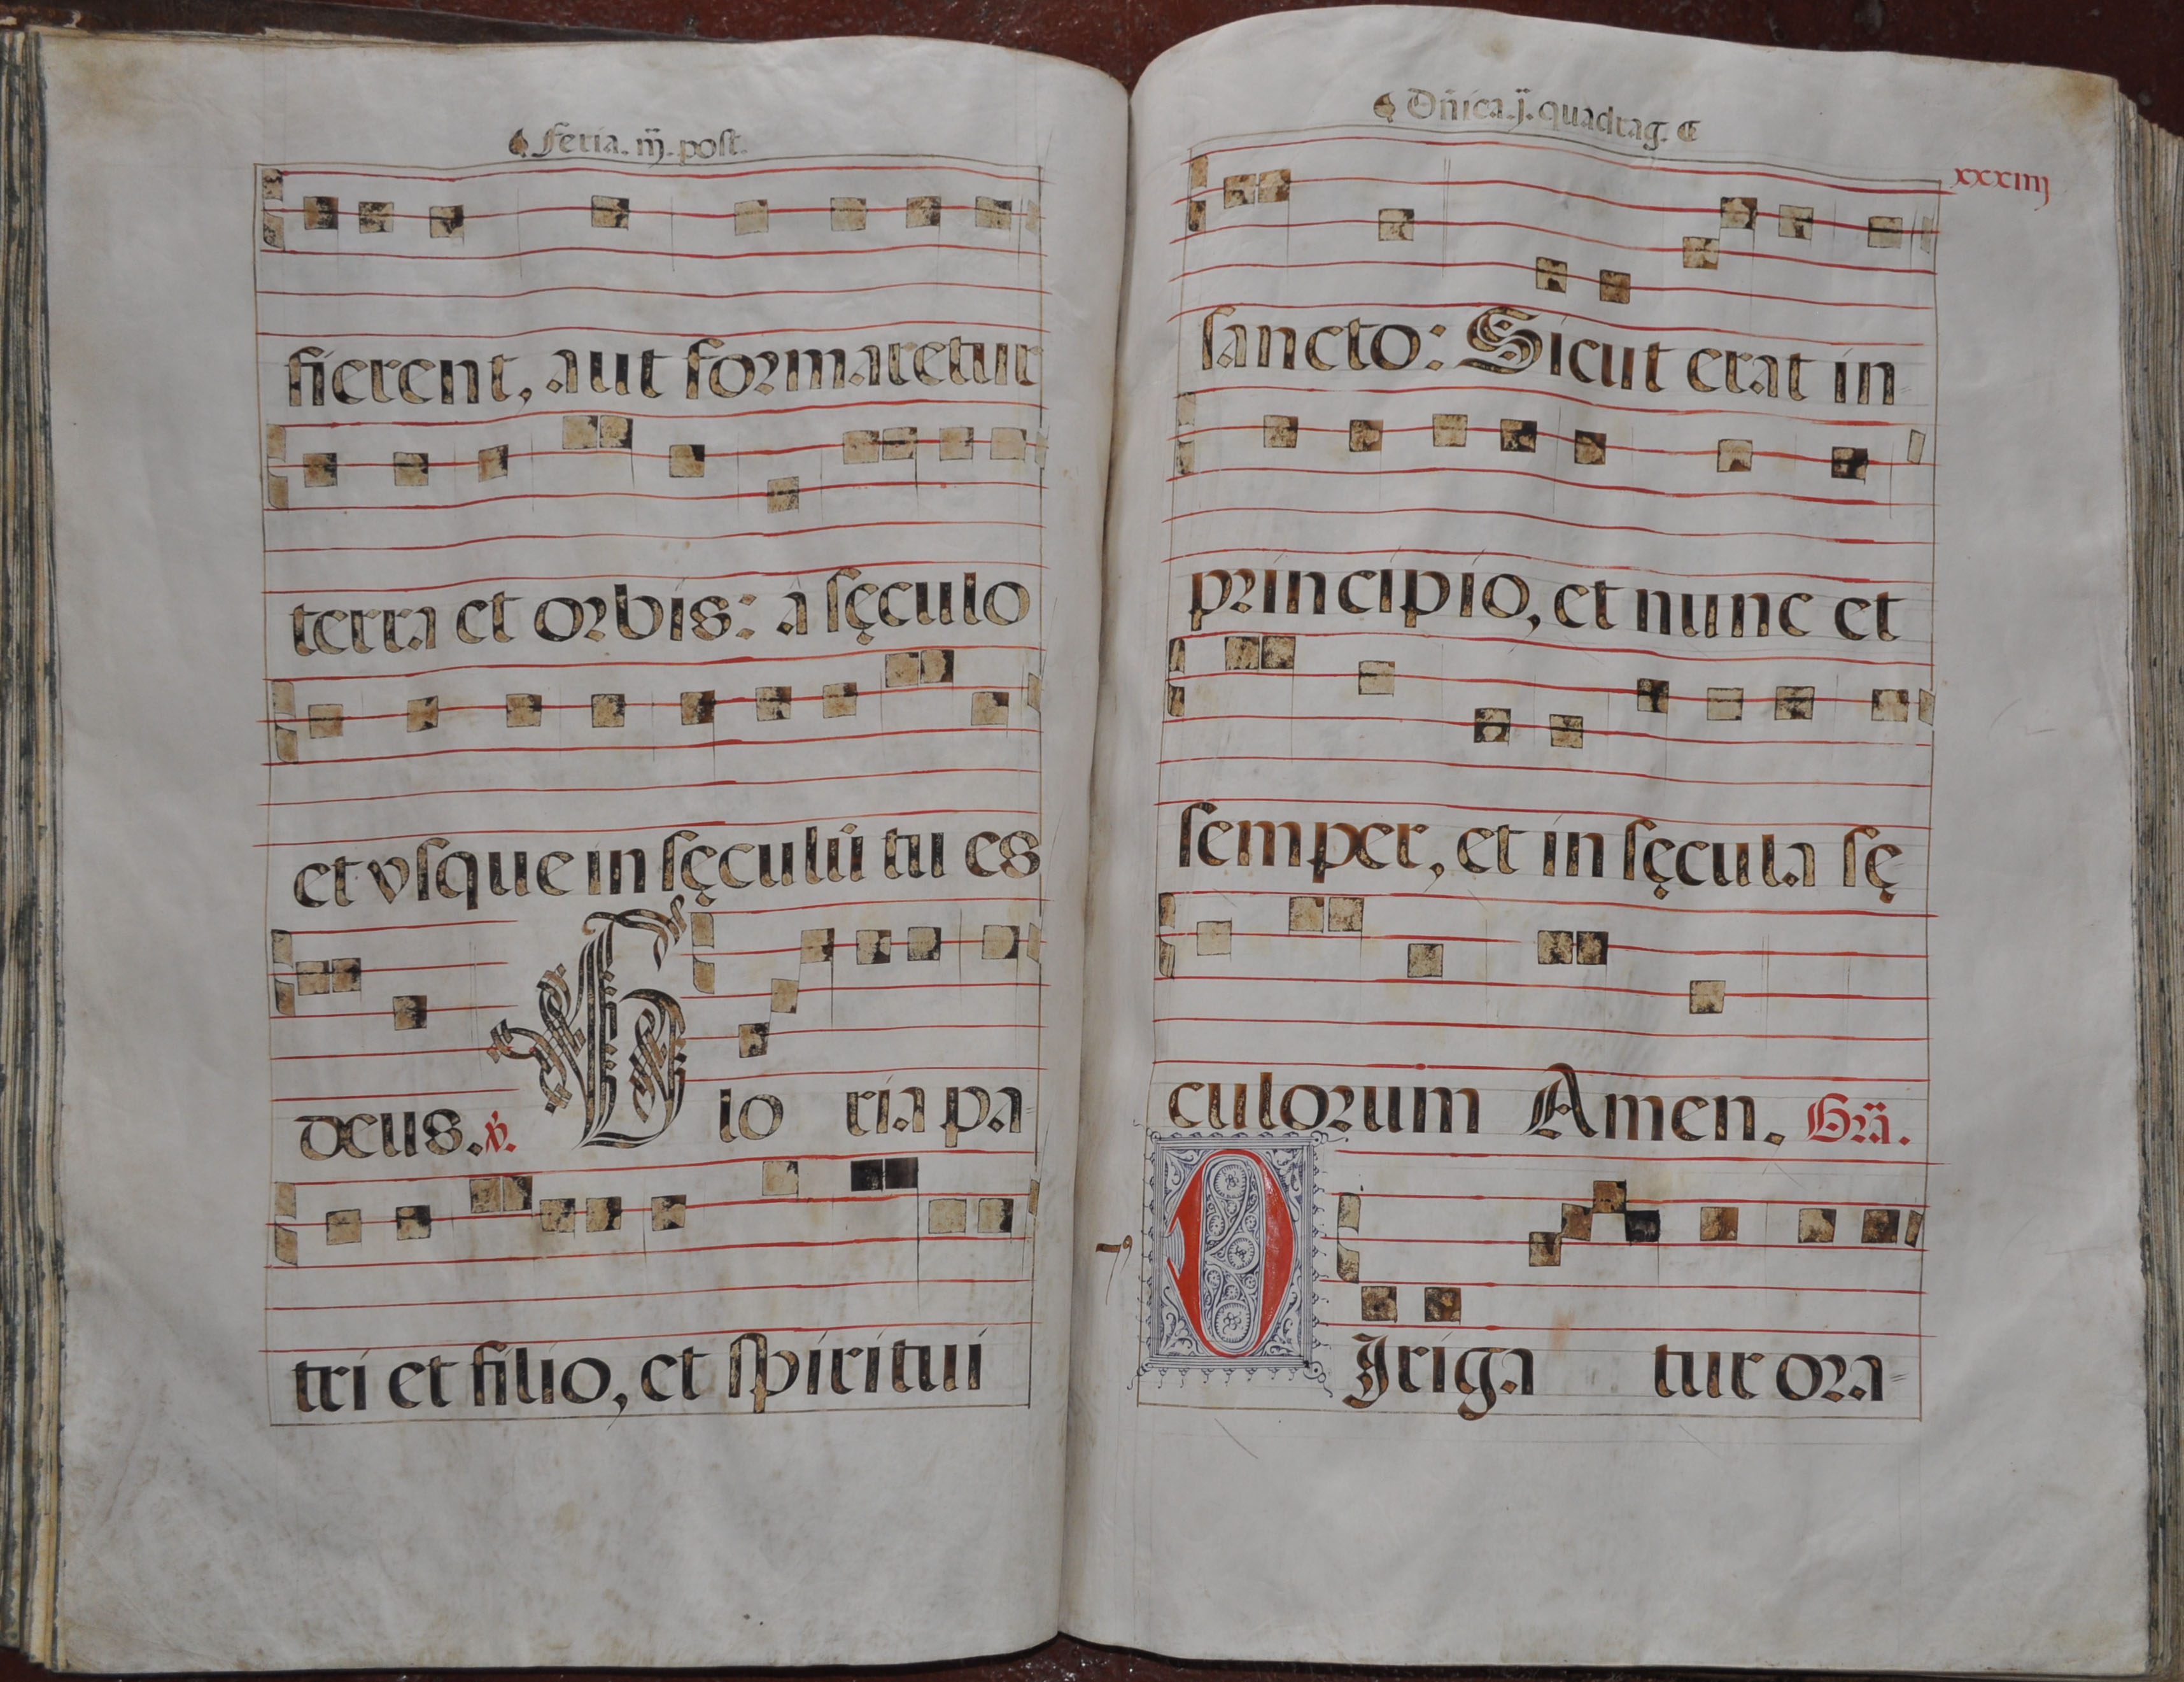 Feria. iij. post.
fierent, aut formaretur
terra et orbis: a sęculo
et vsque in sęculū tu es
deus. ℣. Glo ria pa=
tri et filio, et spiritui
Dñica. j. quadrag.
xxxiiij
sancto: Sicut erat in=
principio, et nunc et
semper, et in sęcula sę
culorum Amen. Grã.
DIriga tur ora=